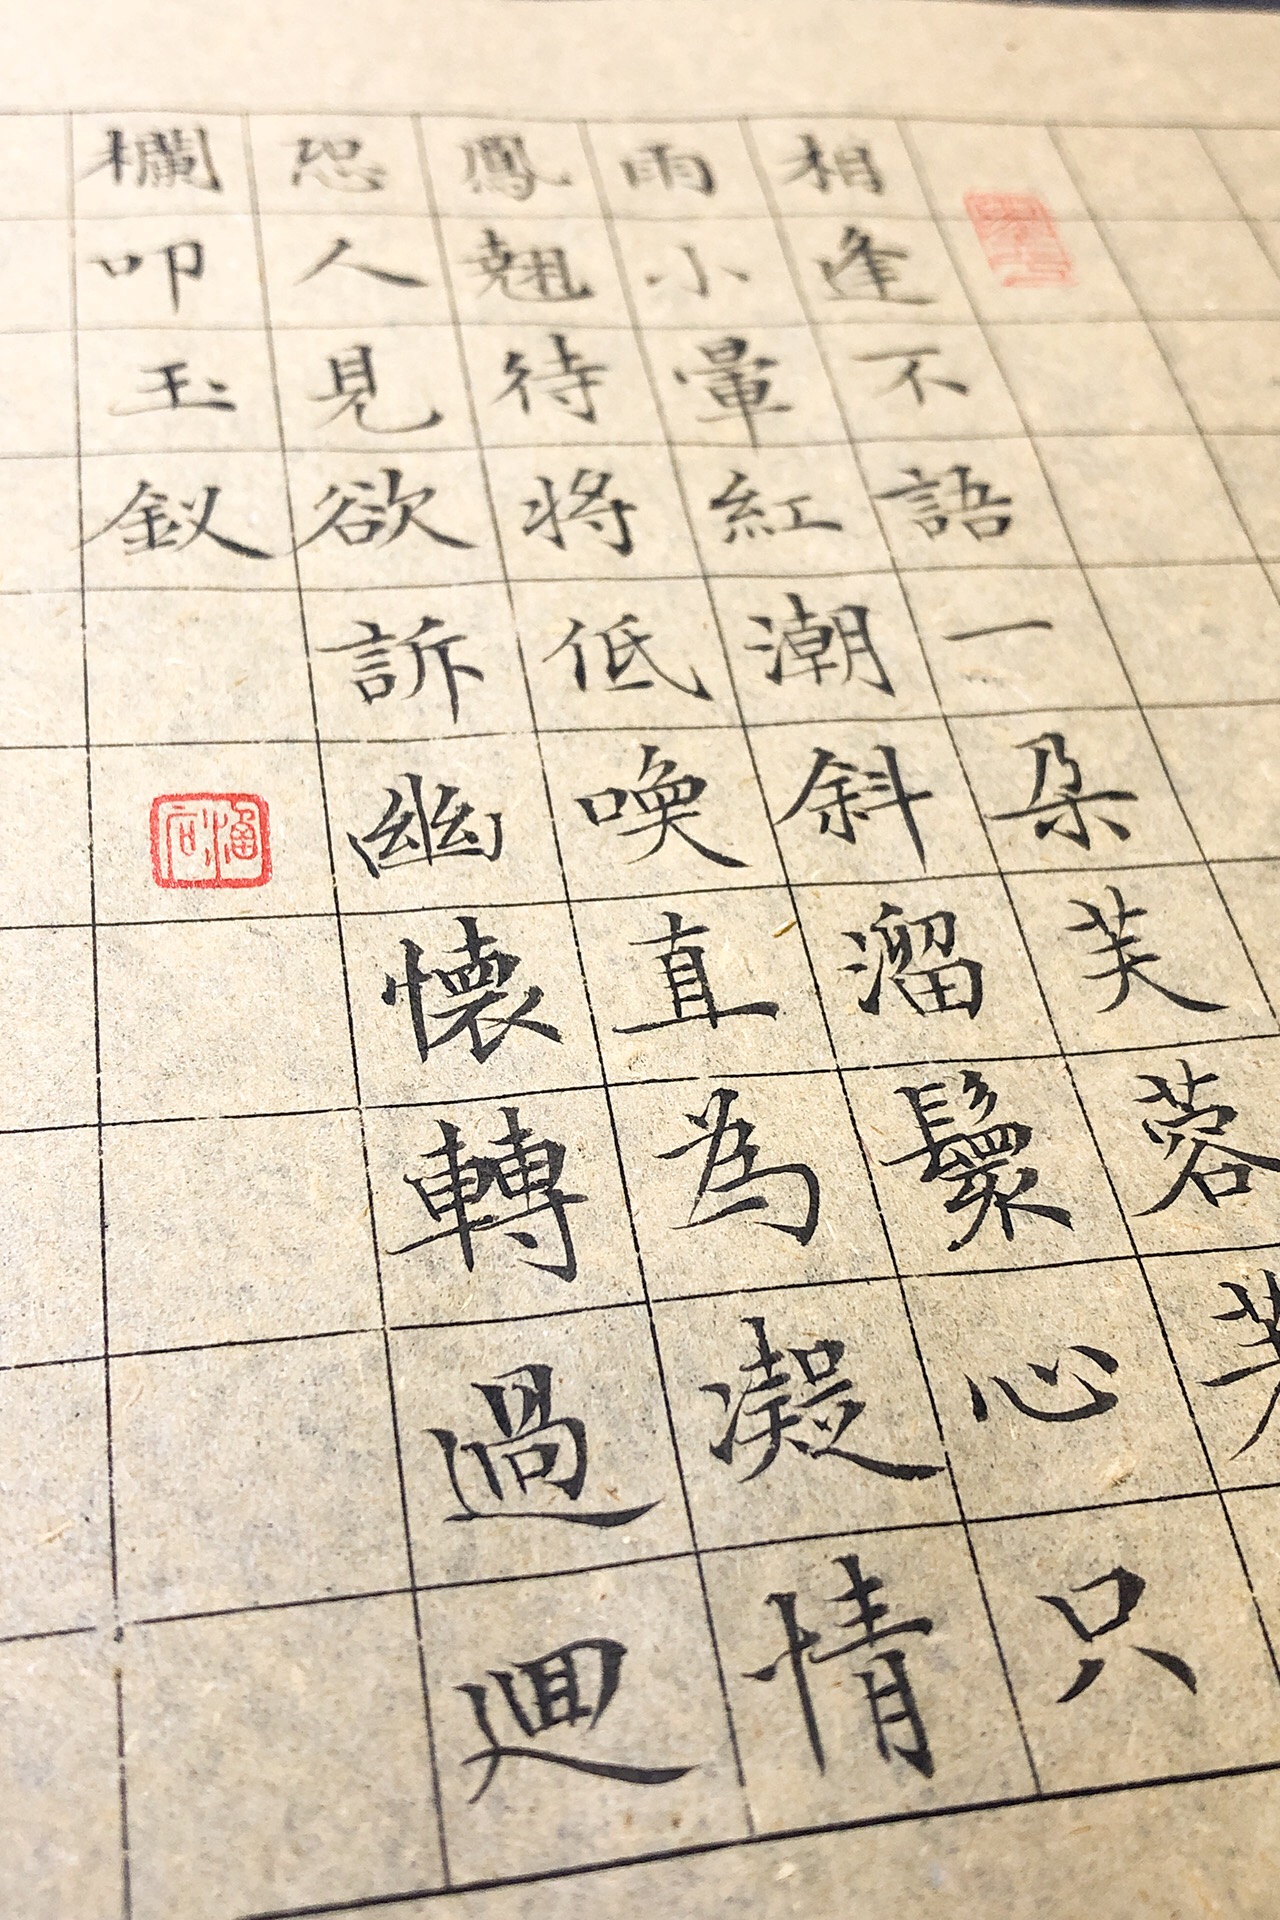 相逢不語一朵芙蓉
雨小暈紅潮斜溜鬟心只
鳳翹待將低喚直為凝情
恐人見欲訴幽懷轉過迴
欄叩玉釵